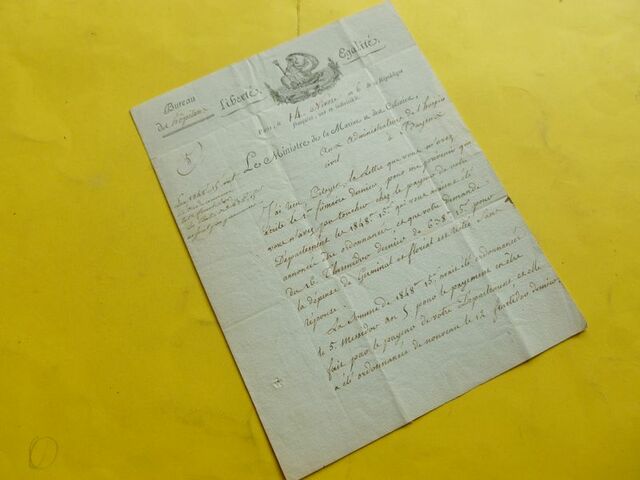 Liberté. Egalité.
Bureau
des hôpitaux
Paris, le 14 Nivose an 6 de la République
française, une et indivisible.
Le Ministre de la Marine et des Colonies,
Aux Administrateurs de l'hospice
civil à Bayeux
5
Les 1848# 15s ont
J'ai reçu, Citoyens, la Lettre que vous m'avez
écrite le frimaire dernier, pour me prévenir que
vous n'avez pas toucher chez le payeur de votre
Département les 1848# 15s qu'il vous avaient été
annoncé être ordonnancés, et que votre demande
du 16 Thermidor dernier de 638# 15s pour
la dépense de Germinal et floréal est restée sans
réponse.
La Somme de 1848# 15s avait été ordonnancée
le 5 Messidor an 5 pour le payement en être
fait par le payeur de votre Département, et elle
a été ordonnancée de nouveau le 12 fructidor dernier